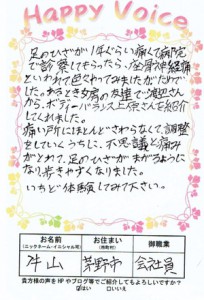 Happy Voice
足のひざが1年ぐらい痛くて病院
で診察してもらったら、座骨神経痛
といわれて色々やってみましたがだめで
した。あるとき女房の友達で渡辺さん
から、ボディーバランス上原さんを紹介
してくれました。
痛い所にほとんどさわらなくて、調整
をしていくうちに、不思議と痛み
がとれて、足のひざがまがるように
なり歩きやすくなりました。
いちど体験してみて下さい。
お名前
(ニックネーム・イニシャル可)
お住まい
(市町村)
御職業
牛山
茅野市
会社員
貴方様の声をHPやブログ等でご紹介してもよろしいですか？
はい
口いいえ